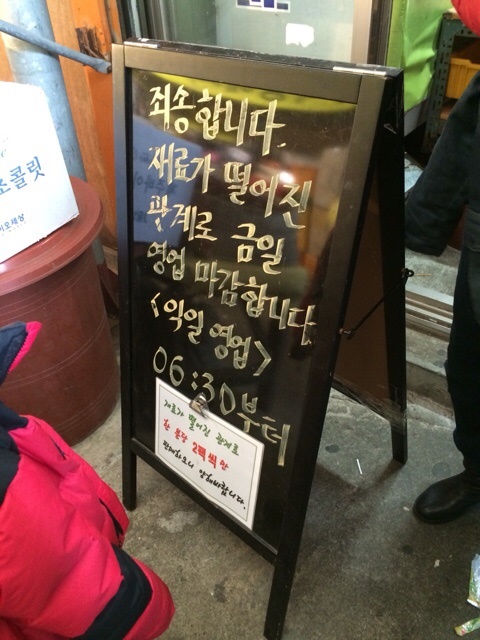 죄송합니다.
재료가 떨어진
관계로 금일
영업 마감합니다
<익일 영업>
06:30부터
재료가 떨어진 관계로
한 분당 2팩씩만
판매하오니 양해바랍니다.
초콜릿